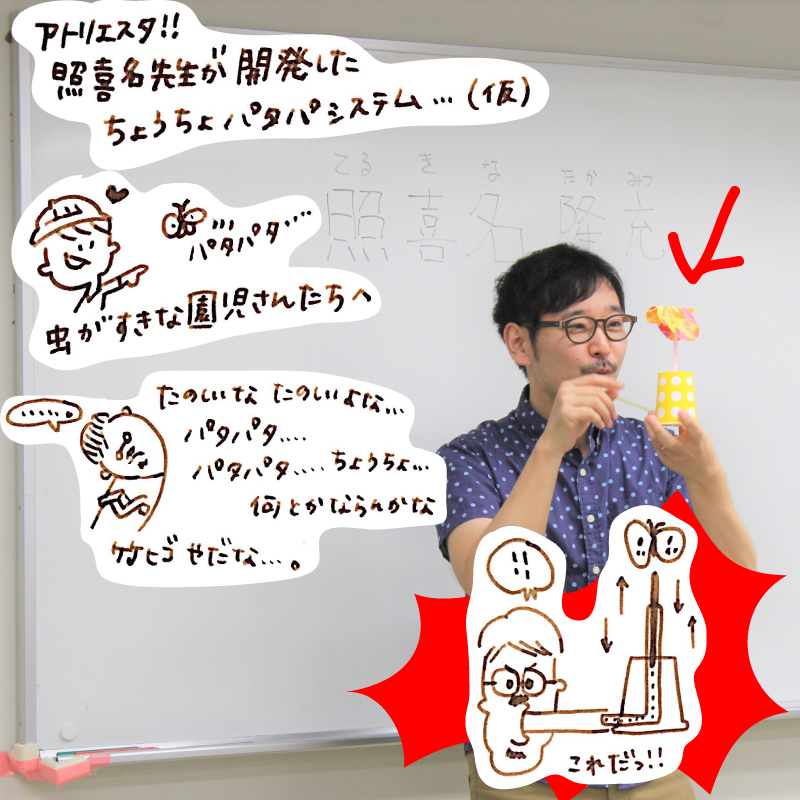 アトリエスタ!!
照喜名先生が開発した
ちょうちょパタパシステム…(仮)
てるきな たかみつ
照喜名 隆充
…
パタパタ…
虫がすきな園児さんたちへ
……。
たのしいな たのしいよな…
パタパタ….
パタパタ….. ちょうちょ…
何とかならんかな
竹ヒゴやだな…。
!!
これだっ!!